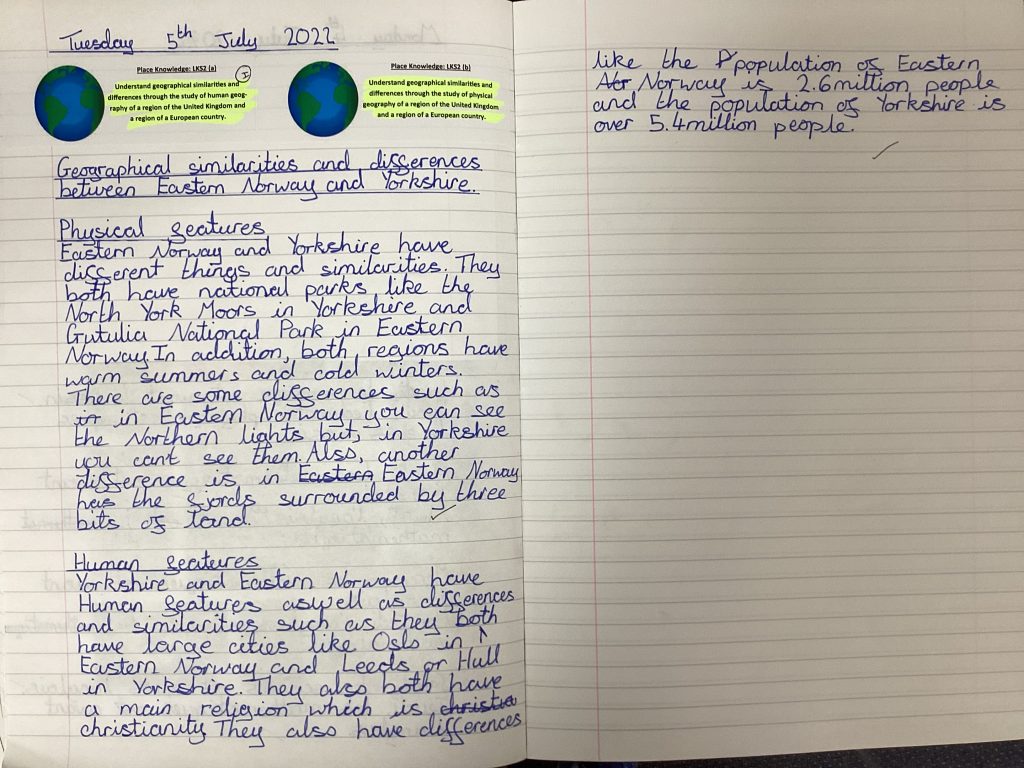 Tuesday 5th July 2022
Place Knowledge: LKS2 (a)
I
Understand geographical similarities and
differences through the study of human geog-
raphy of a region of the United Kingdom and
a region of a European country.
Place Knowledge: LKS2 (b)
Understand geographical similarities and
differences through the study of physical
geography of a region of the United Kingdom
and a region of a European country.
Geographical similarities and differences
between Eastern Norway and Yorkshire.
Physical features
Eastern Norway and Yorkshire have
different things and similarities. They
both have national parks like the
North York Moors in Yorkshire and
Gutulia National Park in Eastern
Norway. In addition, both regions have
warm summers and cold winters.
There are some differences such as
in in Eastern Norway you can see
the Northern lights but, in Yorkshire
you cant see them. Also, another
difference is in Eastern Eastern Norway
has the fjords surrounded by three
bits of land.
Human features
Yorkshire and Eastern Norway have
Human features aswell as differences
and similarities such as they both
have large cities like Oslo in
Eastern Norway and Leeds or Hull
in Yorkshire. They also both have
a main religion which is christia
christianity They also have differences
like the population of Eastern
Norway is 2.6million people
and the population of Yorkshire is
over 5.4million people.